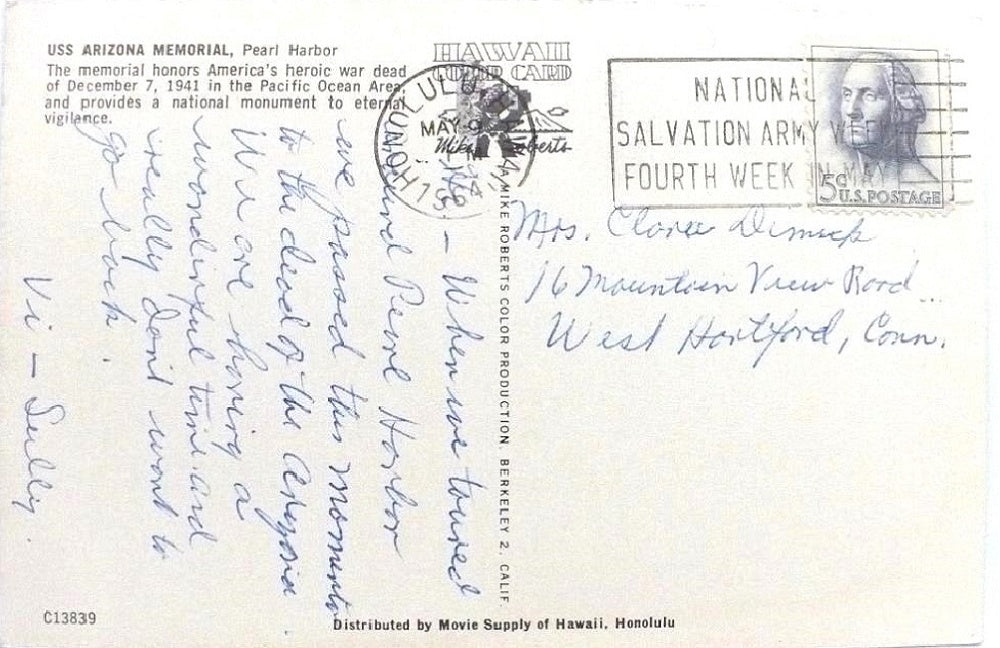 USS ARIZONA MEMORIAL, Pearl Harbor
The memorial honors America's heroic war dead
of December 7, 1941 in the Pacific Ocean Area,
and provides a national monument to eternal
vigilance.
HAWAII
COLOR CARD
Mike Roberts
HONOLULU
MAY 9
NATIONAL
SALVATION ARMY WEEK
FOURTH WEEK IN MAY
5¢
U.S. POSTAGE
— When we toured
around Pearl Harbor
we passed this monument
to the dead of the Arizona.
We are having a
wonderful time and
really don't want to
go back.
Vi — Sully.
A MIKE ROBERTS COLOR PRODUCTION, BERKELEY 2, CALIF.
Mrs.
16 Mountain View Road
West Hartford, Conn.
C13839
Distributed by Movie Supply of Hawaii, Honolulu